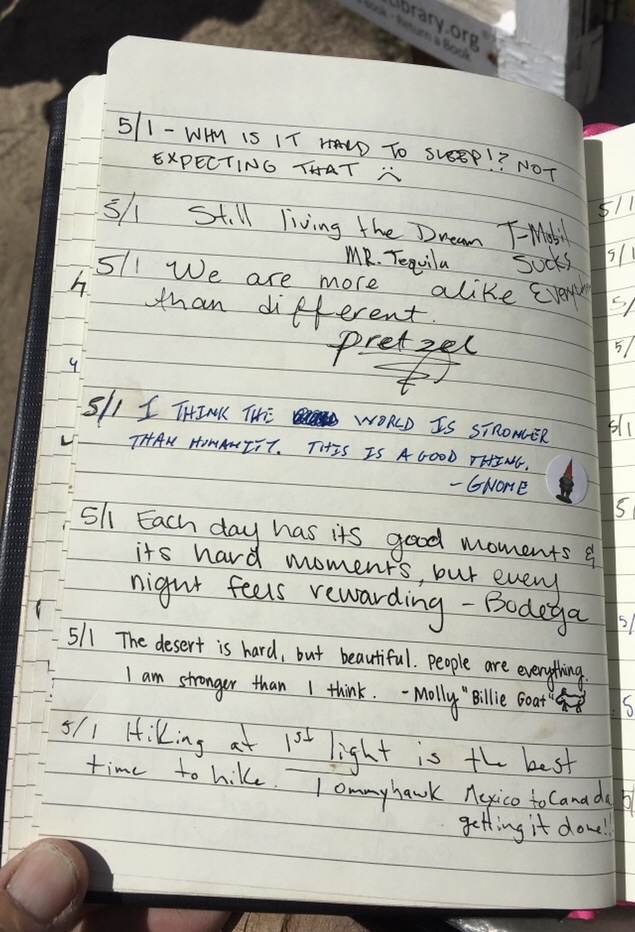 Library.org
Book - Return a Book
5/1 - WHY IS IT HARD TO SLEEP!? NOT
EXPECTING THAT ☹
5/1 Still living the Dream T-Mobil
MR. Tequila SUCKS
5/1 We are more alike Everywhere
than different.
Pretzel
5/1 I THINK THE WORLD IS STRONGER
THAN HUMANITY. THIS IS A GOOD THING.
- GNOME
5/1 Each day has its good moments &
its hard moments, but every
night feels rewarding - Bodega
5/1 The desert is hard, but beautiful. People are everything.
I am stronger than I think. - Molly "Billie Goat"
5/1 Hiking at 1st light is the best
time to hike. Tommyhawk Mexico to Canada
getting it done!!
5/1
5/1
5/
5/
5/1
5
5/
5
5/